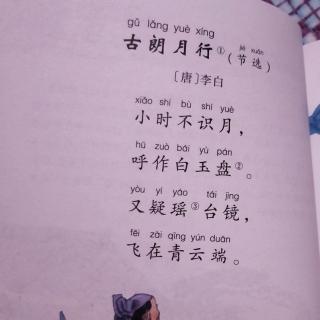 gǔ lǎng yuè xíng
jié xuǎn
古朗月行①(节选)
〔唐〕李白
xiǎo shí bù shí yuè
小时不识月，
hū zuò bái yù pán
呼作白玉盘②。
yòu yí yáo tái jìng
又疑瑶③台镜，
fēi zài qīng yún duān
飞在青云端。